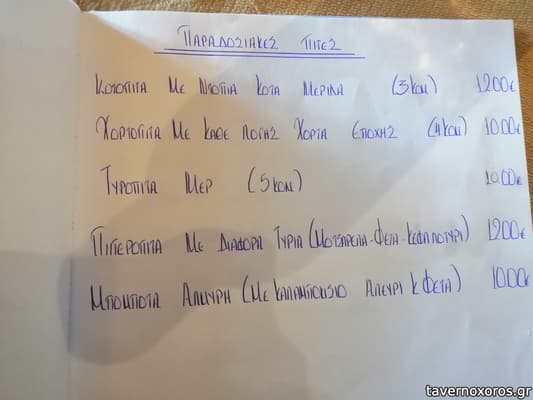 ΠΑΡΑΔΟΣΙΑΚΕΣ ΠΙΤΕΣ
ΚΟΤΟΠΙΤΑ ΜΕ ΝΤΟΠΙΑ ΚΟΤΑ ΜΕΡΙΔΑ (3 ΚΟΜ) 1200€
ΧΟΡΤΟΠΙΤΑ ΜΕ ΚΑΘΕ ΛΟΓΗΣ ΧΟΡΤΑ ΕΠΟΧΗΣ (4 ΚΟΜ) 1000€
ΤΥΡΟΠΙΤΑ ΜΕΡ (5 ΚΟΜ) 1000€
ΠΙΠΕΡΟΠΙΤΑ ΜΕ ΔΙΑΦΟΡΑ ΤΥΡΙΑ (ΜΟΤΣΑΡΕΛΑ-ΦΕΤΑ-ΚΕΦΑΛΟΤΥΡΙ) 1200€
ΜΠΟΜΠΟΤΑ ΑΛΜΥΡΗ (ΜΕ ΚΑΛΑΜΠΟΚΙΣΙΟ ΑΛΕΥΡΙ Κ ΦΕΤΑ) 1000€
tavernoxoros.gr